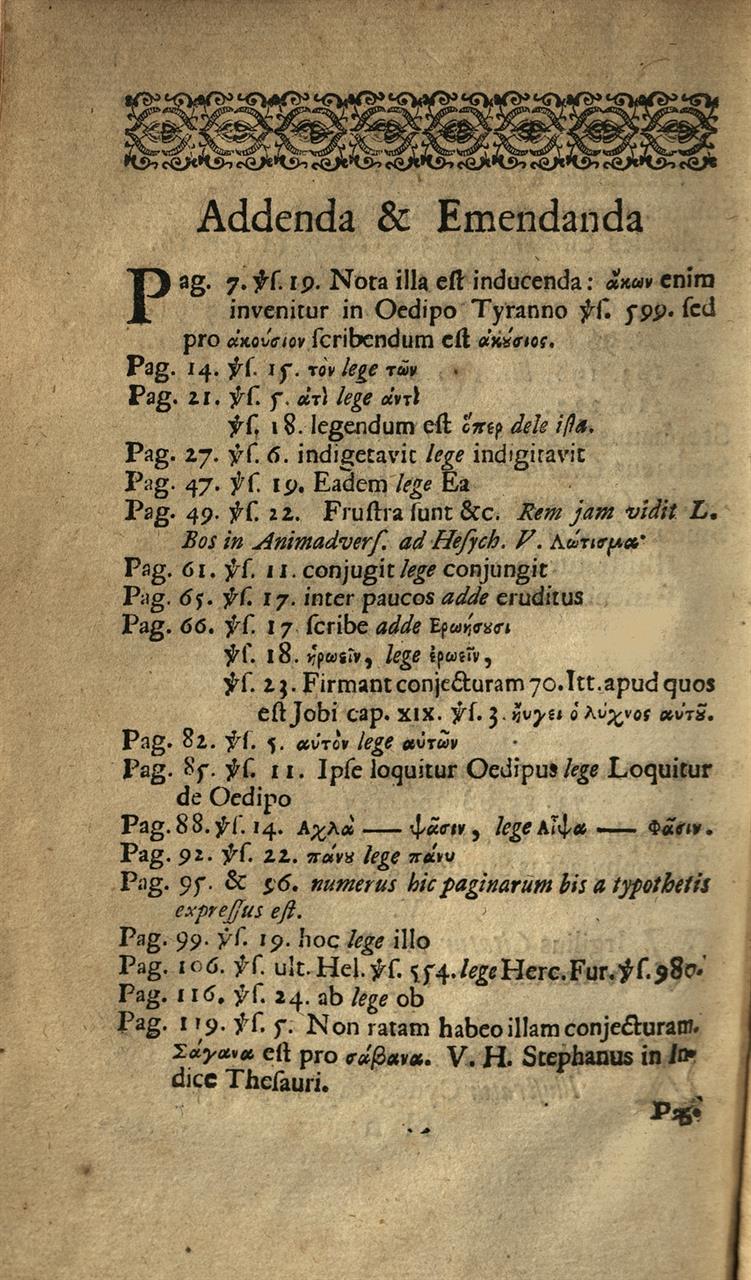 Addenda & Emendanda
Pag. 7. ỿſ. 19. Nota illa eſt inducenda: ἄκων enim
invenitur in Oedipo Tyranno ỿſ. 599. ſed
pro ἀκούσιον ſcribendum eſt ἀκȣ́σιος.
Pag. 14. ỿſ. 15. τὸν lege τῶν
Pag. 21. ỿſ. 5. ἀτὶ lege ἀντὶ
ỿſ. 18. legendum eſt ὅπερ dele iſta.
Pag. 27. ỿſ. 6. indigetavit lege indigitavit
Pag. 47. ỿſ. 19. Eadem lege Ea
Pag. 49. ỿſ. 22. Fruſtra ſunt &c. Rem jam vidit L.
Bos in Animadverſ. ad Heſych. V. Λώτισμα·
Pag. 61. ỿſ. 11. conjugit lege conjungit
Pag. 65. ỿſ. 17. inter paucos adde eruditus
Pag. 66. ỿſ. 17 ſcribe adde Ερωήσȣσι
ỿſ. 18. ἠρωεῖν, lege ἐρωεῖν,
ỿſ. 23. Firmant conjecturam 70. Itt. apud quos
eſt Jobi cap. XIX. ỿſ. 3. ἤυγει ὁ λύχνος αὐτȣ͂.
Pag. 82. ỿſ. 5. αὐτὸν lege αὐτῶν
Pag. 85. ỿſ. 11. Ipſe loquitur Oedipus lege Loquitur
de Oedipo
Pag. 88. ỿſ. 14. Αχλὰ — ψᾶσιν, lege Αἶψα — Φᾶσιν.
Pag. 92. ỿſ. 22. πάνȣ lege πάνυ
Pag. 95. & 96. numerus hic paginarum bis a typothetis
expreſſus eſt.
Pag. 99. ỿſ. 19. hoc lege illo
Pag. 106. ỿſ. ult. Hel. ỿſ. 554. lege Herc. Fur. ỿſ. 980.
Pag. 116. ỿſ. 24. ab lege ob
Pag. 119. ỿſ. 5. Non ratam habeo illam conjecturam.
Σάγανα eſt pro σάβανα. V. H. Stephanus in In-
dice Theſauri.
Pag.